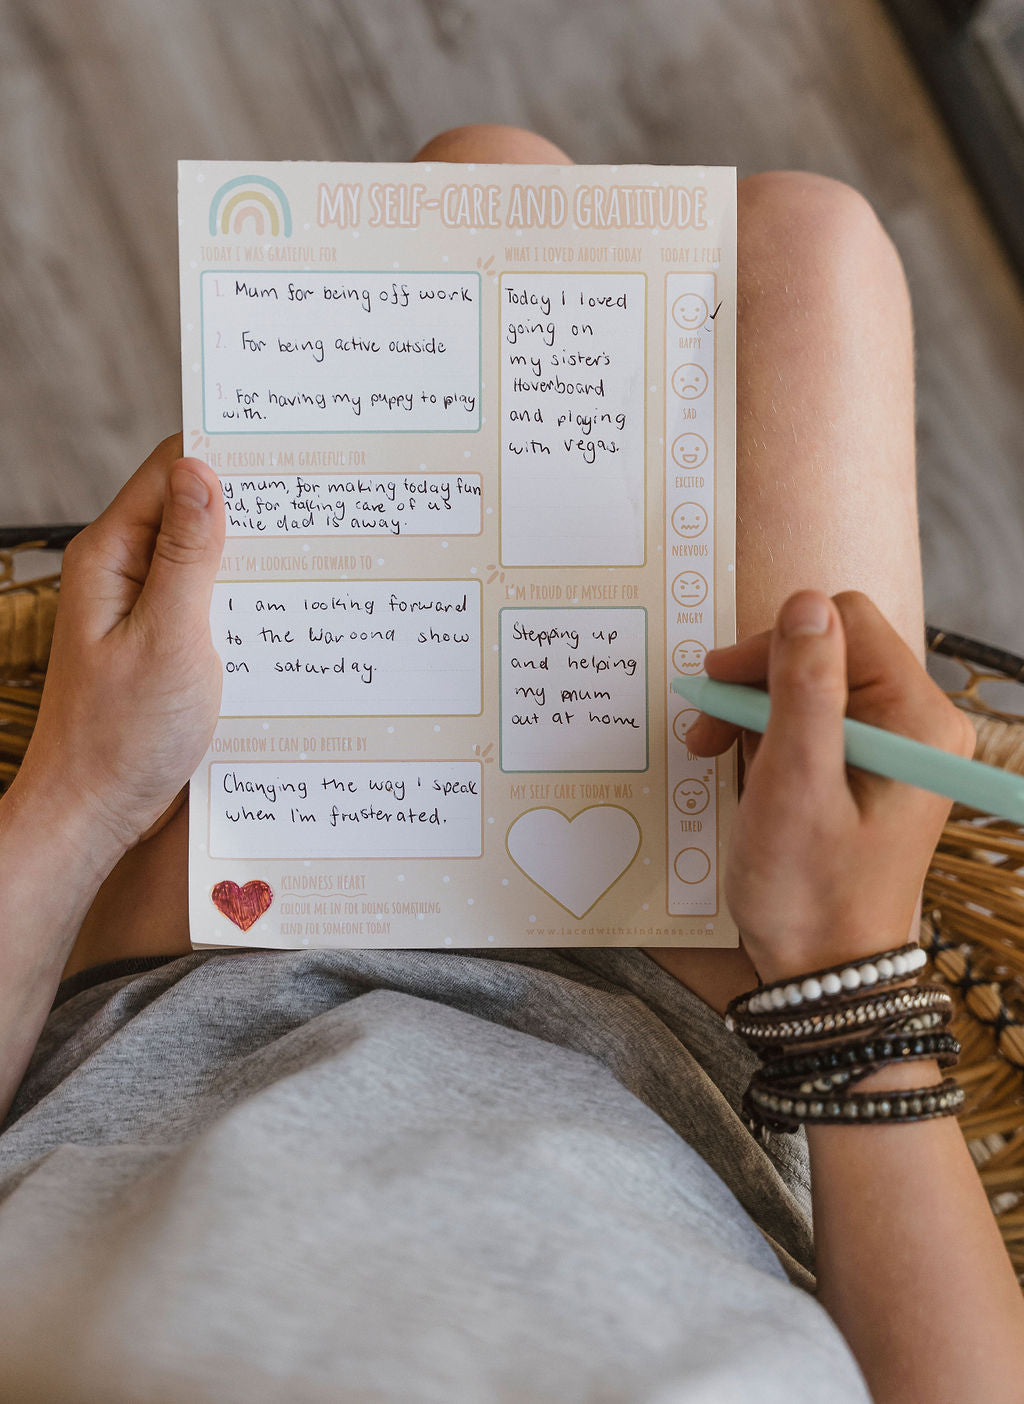 MY SELF-CARE AND GRATITUDE
TODAY I WAS GRATEFUL FOR
1. Mum for being off work
2. For being active outside
3. For having my puppy to play
with.
THE PERSON I AM GRATEFUL FOR
my mum, for making today fun
and, for taking care of us
while dad is away.
WHAT I'M LOOKING FORWARD TO
I am looking forward
to the Waroona show
on saturday.
TOMORROW I CAN DO BETTER BY
Changing the way I speak
when I'm frusterated.
KINDNESS HEART
COLOUR ME IN FOR DOING SOMETHING
KIND FOR SOMEONE TODAY
WHAT I LOVED ABOUT TODAY
Today I loved
going on
my sister's
Hoverboard
and playing
with Vegas.
I'M PROUD OF MYSELF FOR
Stepping up
and helping
my mum
out at home
MY SELF CARE TODAY WAS
TODAY I FELT
HAPPY
SAD
EXCITED
NERVOUS
ANGRY
OK
TIRED
www.lacedwithkindness.com